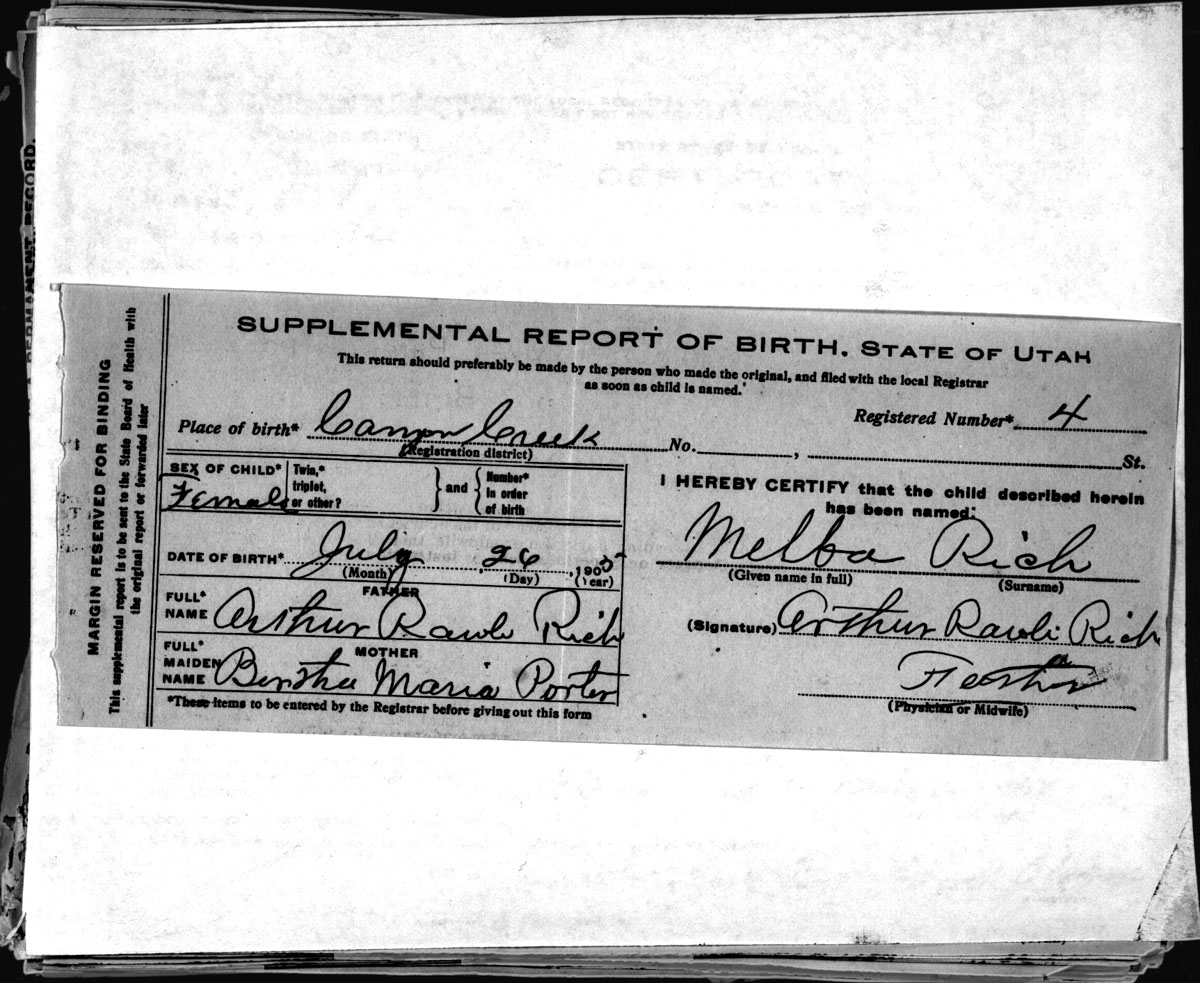 PERMANENT RECORD.
MARGIN RESERVED FOR BINDING
This supplemental report is to be sent to the State Board of Health with
the original report or forwarded later
SUPPLEMENTAL REPORT OF BIRTH. STATE OF UTAH
This return should preferably be made by the person who made the original, and filed with the local Registrar
as soon as child is named.
Registered Number* 4
Place of birth* Canyon Creek No. , St.
(Registration district)
SEX OF CHILD* Female Twin,* triplet, or other? } and { Number* in order of birth
DATE OF BIRTH* July 26, 1905
(Month) (Day) (Year)
FATHER
FULL* NAME Arthur Rawli Rich
MOTHER
FULL* MAIDEN NAME Bertha Maria Porter
*These items to be entered by the Registrar before giving out this form
I HEREBY CERTIFY that the child described herein
has been named:
Melba Rich
(Given name in full) (Surname)
(Signature) Arthur Rawli Rich
Father
(Physician or Midwife)